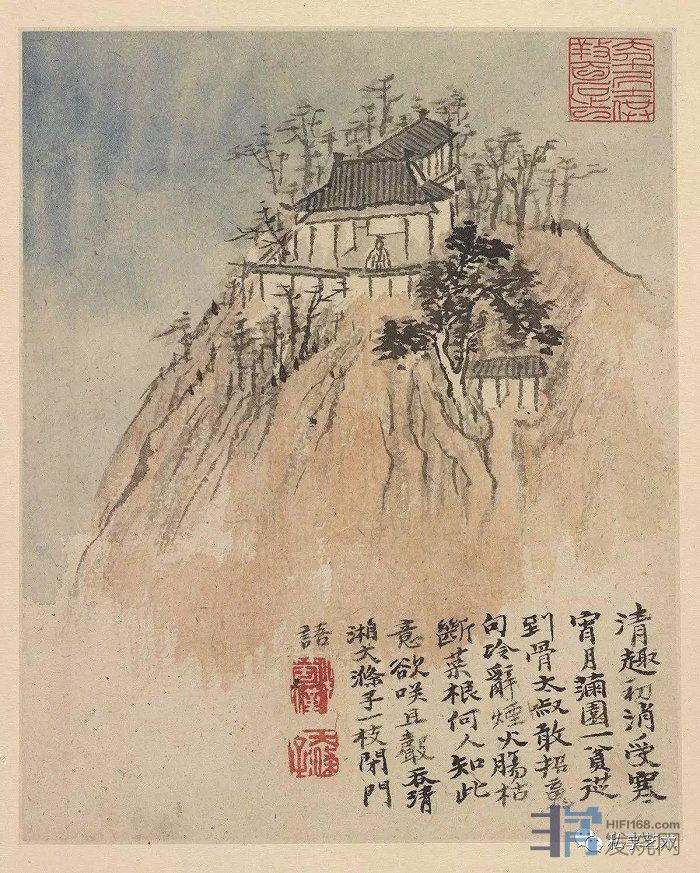 清趣初消受寒
宵月滿園一貧從
到骨敢招魂
句冷辭煙火腸枯
斷菜根何人知此
意欲咲且聲吞清
湘大滌子一枝閉門
語
HIFI168.com
发烧网